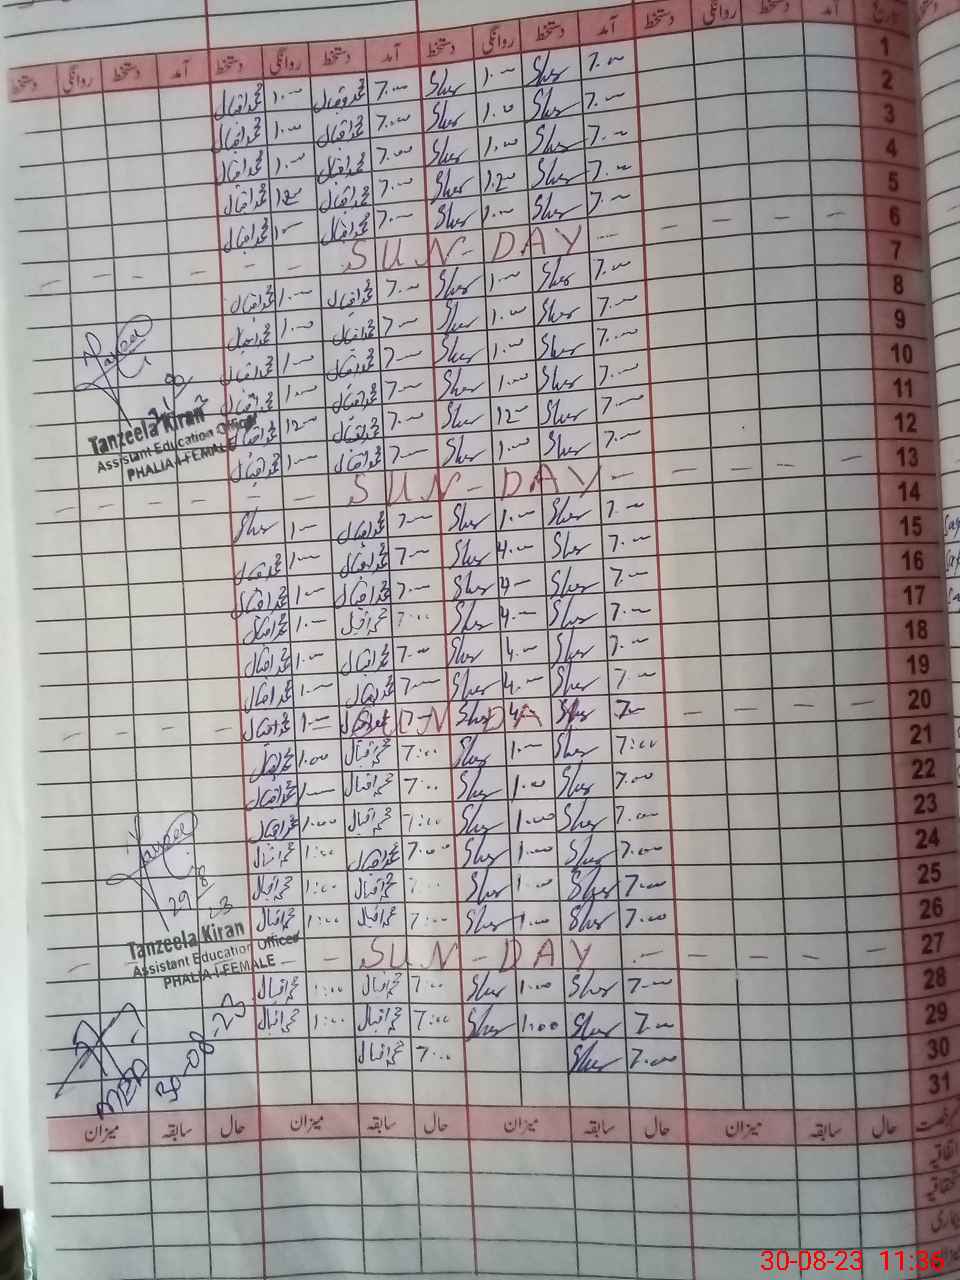 تاریخ آمد دستخط روانگی دستخط آمد دستخط روانگی دستخط آمد دستخط روانگی دستخط
1 7.00 Sher 1.00 Sher 7.00 محمد اقبال 1.00 محمد اقبال
2 7.00 Sher 1.00 Sher 7.00 محمد اقبال 1.00 محمد اقبال
3 7.00 Sher 1.00 Sher 7.00 محمد اقبال 1.00 محمد اقبال
4 7.00 Sher 12.00 Sher 7.00 محمد اقبال 12.00 محمد اقبال
5 7.00 Sher 1.00 Sher 7.00 محمد اقبال 1.00 محمد اقبال
6 SUN-DAY
7 7.00 Sher 1.00 Sher 7.00 محمد اقبال 1.00 محمد اقبال
8 7.00 Sher 1.00 Sher 7.00 محمد اقبال 1.00 محمد اقبال
9 7.00 Sher 1.00 Sher 7.00 محمد اقبال 1.00 محمد اقبال
10 7.00 Sher 1.00 Sher 7.00 محمد اقبال 1.00 محمد اقبال
11 7.00 Sher 12.00 Sher 7.00 محمد اقبال 12.00 محمد اقبال
12 7.00 Sher 1.00 Sher 7.00 محمد اقبال 1.00 محمد اقبال
Tanzeela Kiran
Assistant Education Officer
PHALIA-I FEMALE
13 SUN-DAY
14 7.00 Sher 1.00 Sher 7.00 محمد اقبال 1.00 Sher
15 7.00 Sher 4.00 Sher 7.00 محمد اقبال 1.00 محمد اقبال
16 7.00 Sher 4.00 Sher 7.00 محمد اقبال 1.00 محمد اقبال
17 7.00 Sher 4.00 Sher 7:00 محمد اقبال 1.00 محمد اقبال
18 7.00 Sher 4.00 Sher 7.00 محمد اقبال 1.00 محمد اقبال
19 7.00 Sher 4.00 Sher 7.00 محمد اقبال 1.00 محمد اقبال
20 SUN DAY 7.00 Sher 4 Sher 7 1.00 محمد اقبال
21 7:00 Sher 1.00 Sher 7:00 محمد اقبال 1.00 محمد اقبال
22 7.00 Sher 1.00 Sher 7.00 محمد اقبال 1.00 محمد اقبال
23 7.00 Sher 1.00 Sher 7:00 محمد اقبال 1.00 محمد اقبال
24 7.00 Sher 1.00 Sher 7.00 محمد اقبال 1:00 محمد اقبال
25 7.00 Sher 1.00 Sher 7:00 محمد اقبال 1:00 محمد اقبال
26 7.00 Sher 1.00 Sher 7:00 محمد اقبال 1:00 محمد اقبال
29/8 23
Tanzeela Kiran
Assistant Education Officer
PHALIA-I FEMALE
27 SUN-DAY
28 7.00 Sher 1.00 Sher 7:00 محمد اقبال 1:00 محمد اقبال
29 7.00 Sher 1:00 Sher 7:00 محمد اقبال 1:00 محمد اقبال
30 7.00 Sher 7:00 محمد اقبال
30-08-23
31
حال سابقہ میزان حال سابقہ میزان حال سابقہ میزان حال سابقہ میزان
اتفاقیہ
30-08-23 11:36